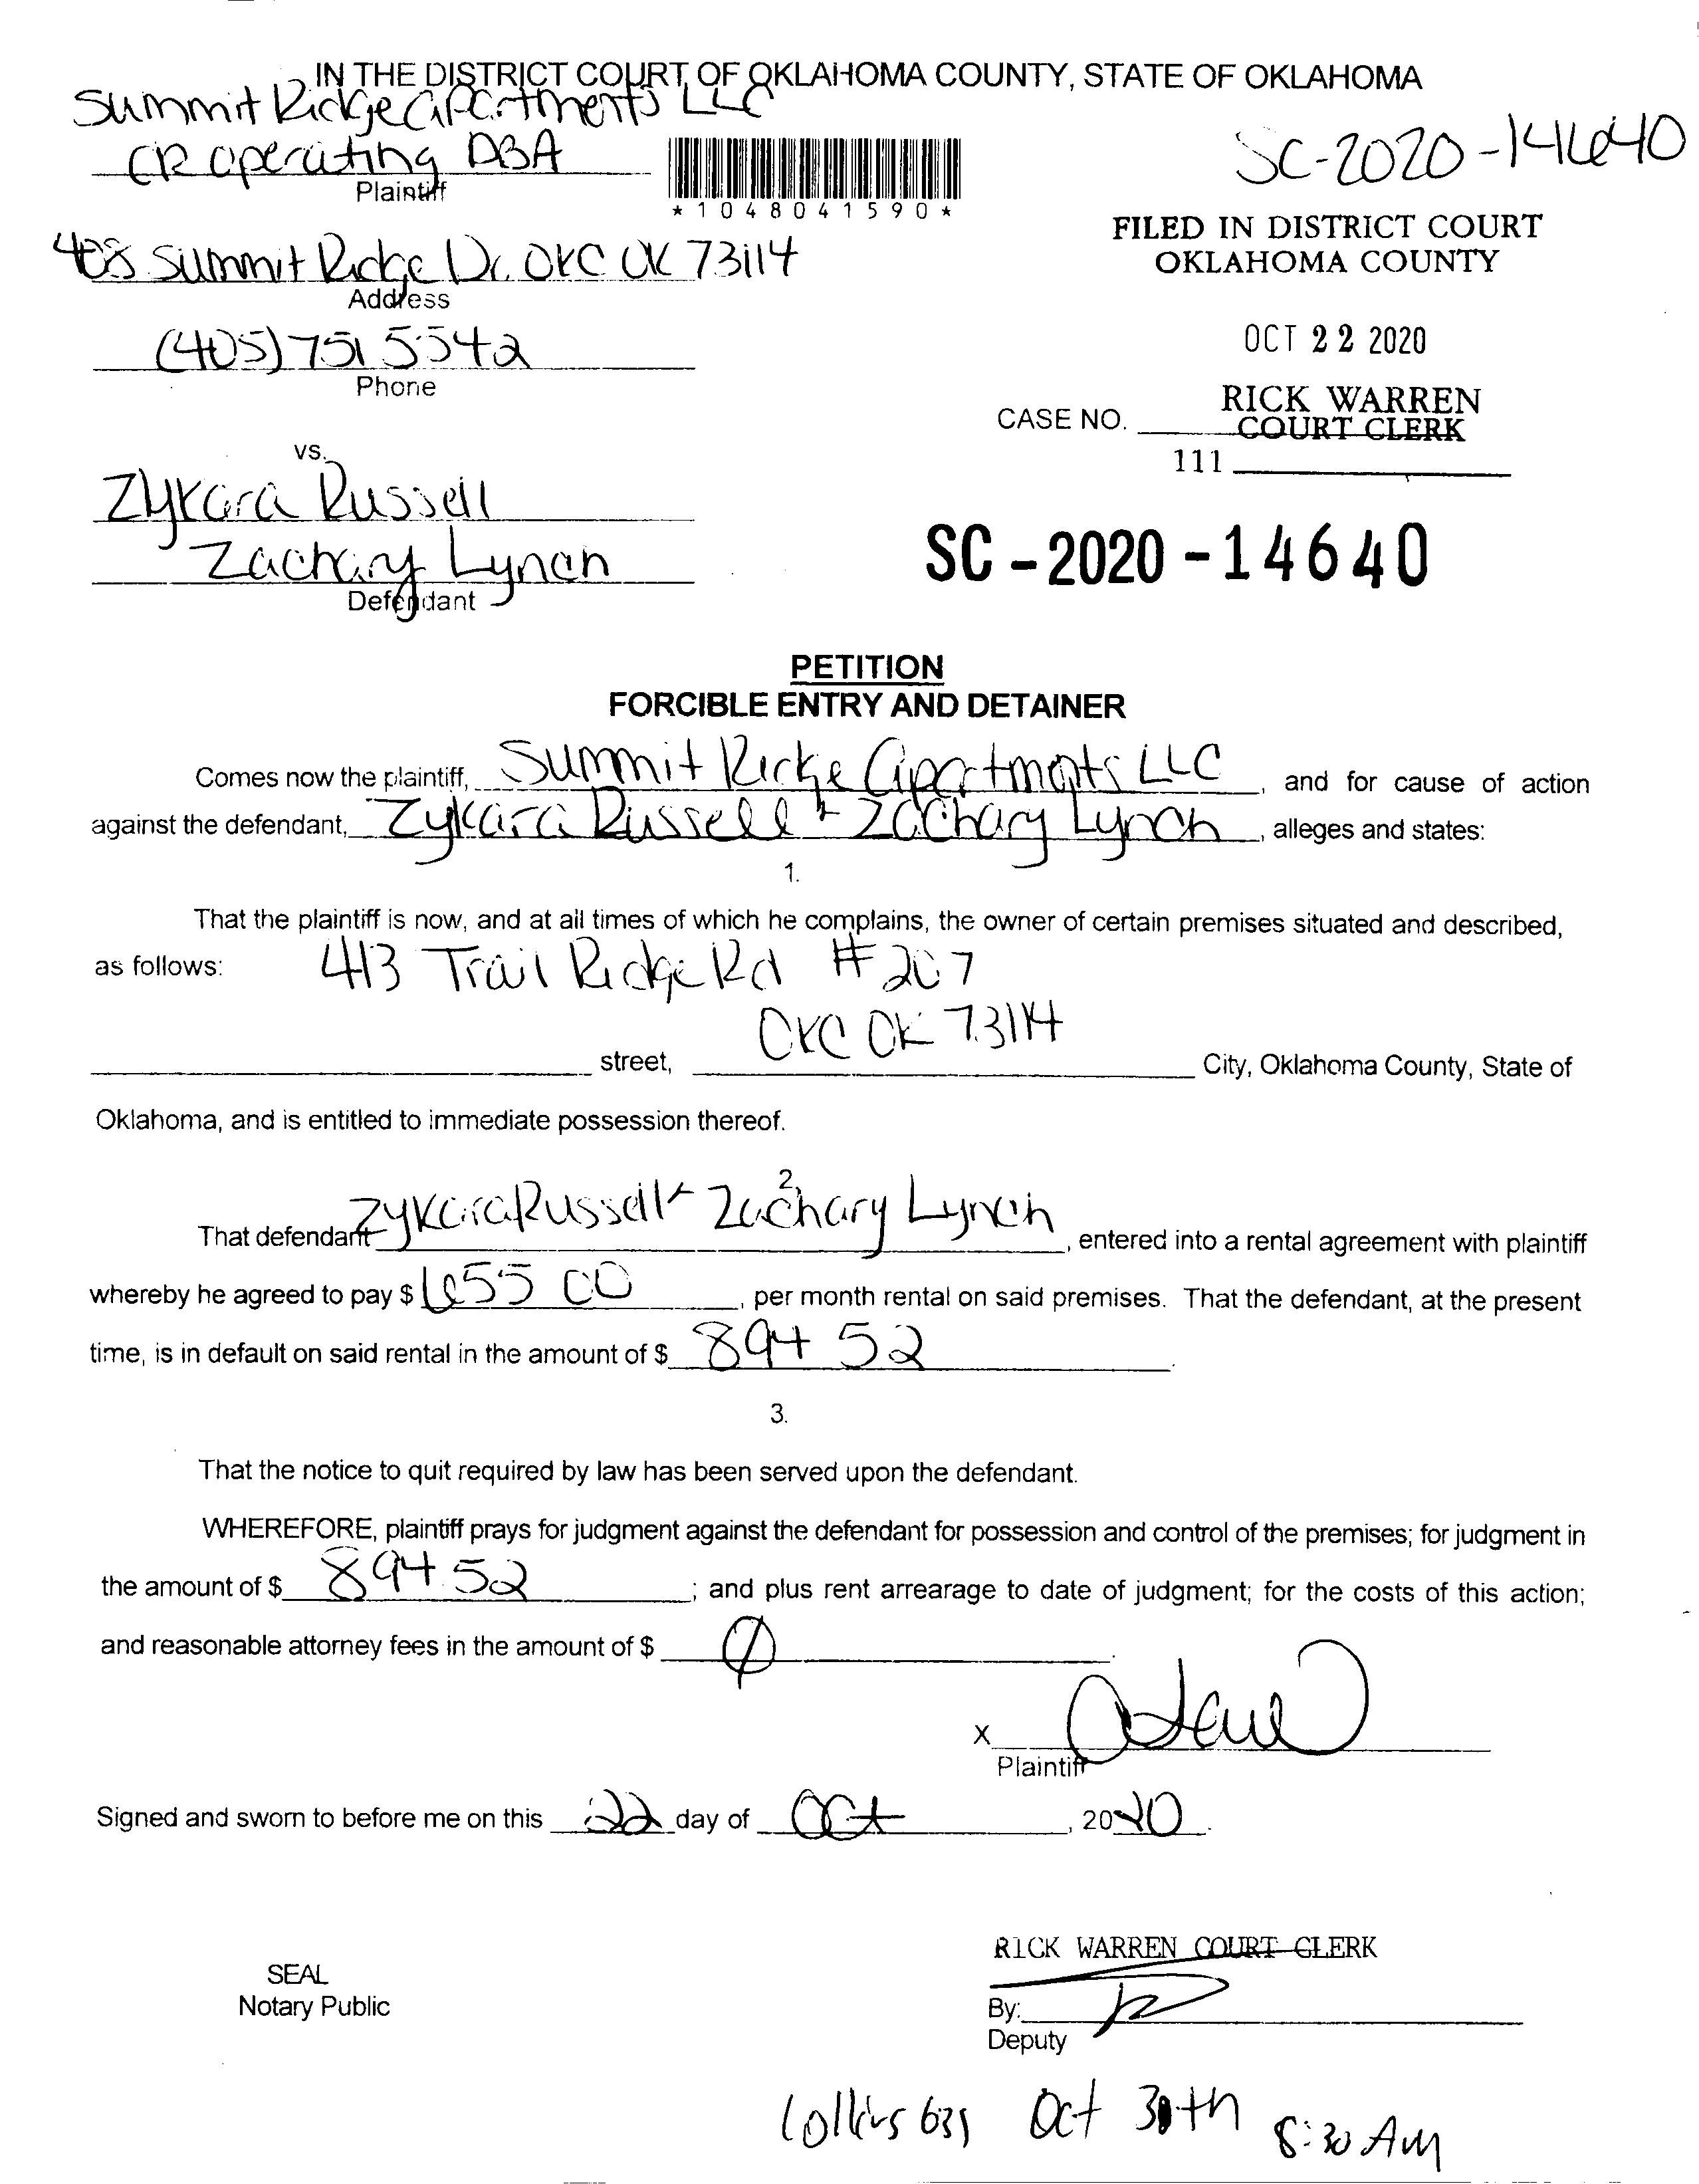 IN THE DISTRICT COURT OF OKLAHOMA COUNTY, STATE OF OKLAHOMA
Summit Ridge Apartments LLC
CR Operating DBA
Plaintiff
*1048041590*
SC-2020-14640
408 Summit Ridge Dr. OKC OK 73114
Address
FILED IN DISTRICT COURT
OKLAHOMA COUNTY
(405) 751 5542
Phone
OCT 22 2020
RICK WARREN
COURT CLERK
CASE NO.
111
vs.
Zykara Russell
Zachary Lynch
Defendant
SC-2020-14640
PETITION
FORCIBLE ENTRY AND DETAINER
Comes now the plaintiff, Summit Ridge Apartments LLC, and for cause of action
against the defendant, Zykara Russell + Zachary Lynch, alleges and states:
1.
That the plaintiff is now, and at all times of which he complains, the owner of certain premises situated and described,
as follows: 413 Trail Ridge Rd #207
OKC OK 73114
street, City, Oklahoma County, State of
Oklahoma, and is entitled to immediate possession thereof.
2.
That defendant Zykara Russell + Zachary Lynch, entered into a rental agreement with plaintiff
whereby he agreed to pay $ 655 00, per month rental on said premises. That the defendant, at the present
time, is in default on said rental in the amount of $ 894 52.
3.
That the notice to quit required by law has been served upon the defendant.
WHEREFORE, plaintiff prays for judgment against the defendant for possession and control of the premises; for judgment in
the amount of $ 894.52; and plus rent arrearage to date of judgment; for the costs of this action;
and reasonable attorney fees in the amount of $ 0.
X
Plaintiff
Signed and sworn to before me on this 22 day of Oct, 2020.
RICK WARREN COURT CLERK
SEAL
Notary Public
By:
Deputy
Collins 631 Oct 30th 8:30 AM